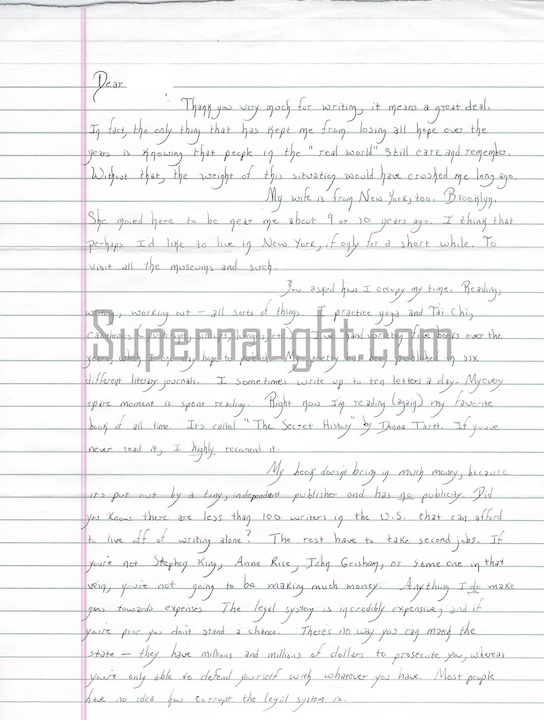 Dear
Thank you very much for writing, it means a great deal.
In fact, the only thing that has kept me from losing all hope over the
years is knowing that people in the "real world" still care and remember.
Without that, the weight of this situation would have crushed me long ago.
My wife is from New York, too. Brooklyn.
She moved here to be near me about 9 or 10 years ago. I think that
perhaps I'd like to live in New York, if only for a short while. To
visit all the museums and such.
You asked how I occupy my time. Reading,
writing, working out — all sorts of things. I practice yoga and Tai Chi,
Supernaught.com
I've hand written five books over the
years, which I hope to My poetry has been published in six
different literary journals. I sometimes write up to ten letters a day. My every
spare moment is spent reading. Right now I'm reading (again) my favorite
book of all time. It's called "The Secret History" by Donna Tartt. If you've
never read it, I highly recomend it.
My book doesn't bring in much money, because
it's put out by a tiny, independent publisher and has no publicity. Did
you know there are less than 100 writers in the U.S. that can afford
to live off of writing alone? The rest have to take second jobs. If
you're not Stephen King, Anne Rice, John Grisham, or some one in that
vein, you're not going to be making much money. Anything I do make
goes towards expenses. The legal system is incredibly expensive, and if
you're poor you don't stand a chance. There's no way you can match the
state — they have millions and millions of dollars to prosecute you, whereas
you're only able to defend yourself with whatever you have. Most people
have no idea how corrupt the legal system is.